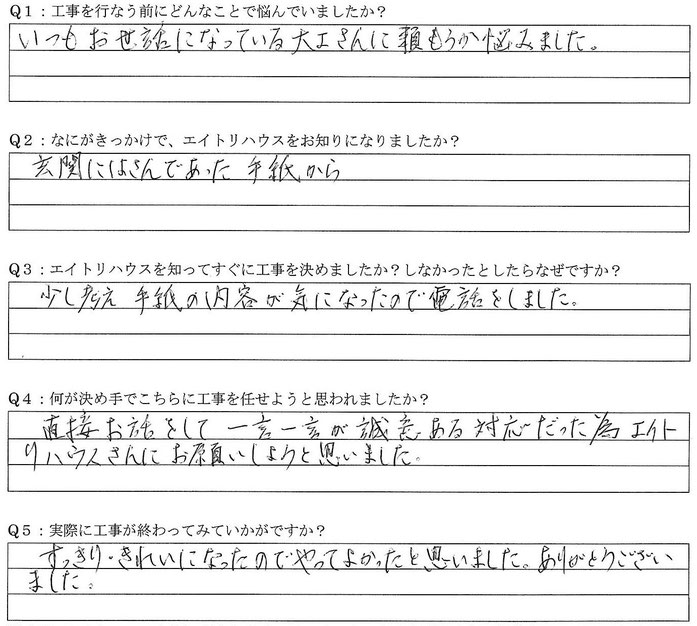 Q1：工事を行なう前にどんなことで悩んでいましたか？
いつもお世話になっている大工さんに頼もうか悩みました。
Q2：なにがきっかけで、エイトリハウスをお知りになりましたか？
玄関にはさんであった手紙から
Q3：エイトリハウスを知ってすぐに工事を決めましたか？しなかったとしたらなぜですか？
少し考え手紙の内容が気になったので電話をしました。
Q4：何が決め手でこちらに工事を任せようと思われましたか？
直接お話をして一言一言が誠意ある対応だった為エイト
リハウスさんにお願いしようと思いました。
Q5：実際に工事が終わってみていかがですか？
すっきり・きれいになったのでやってよかったと思いました。ありがとうござい
ました。